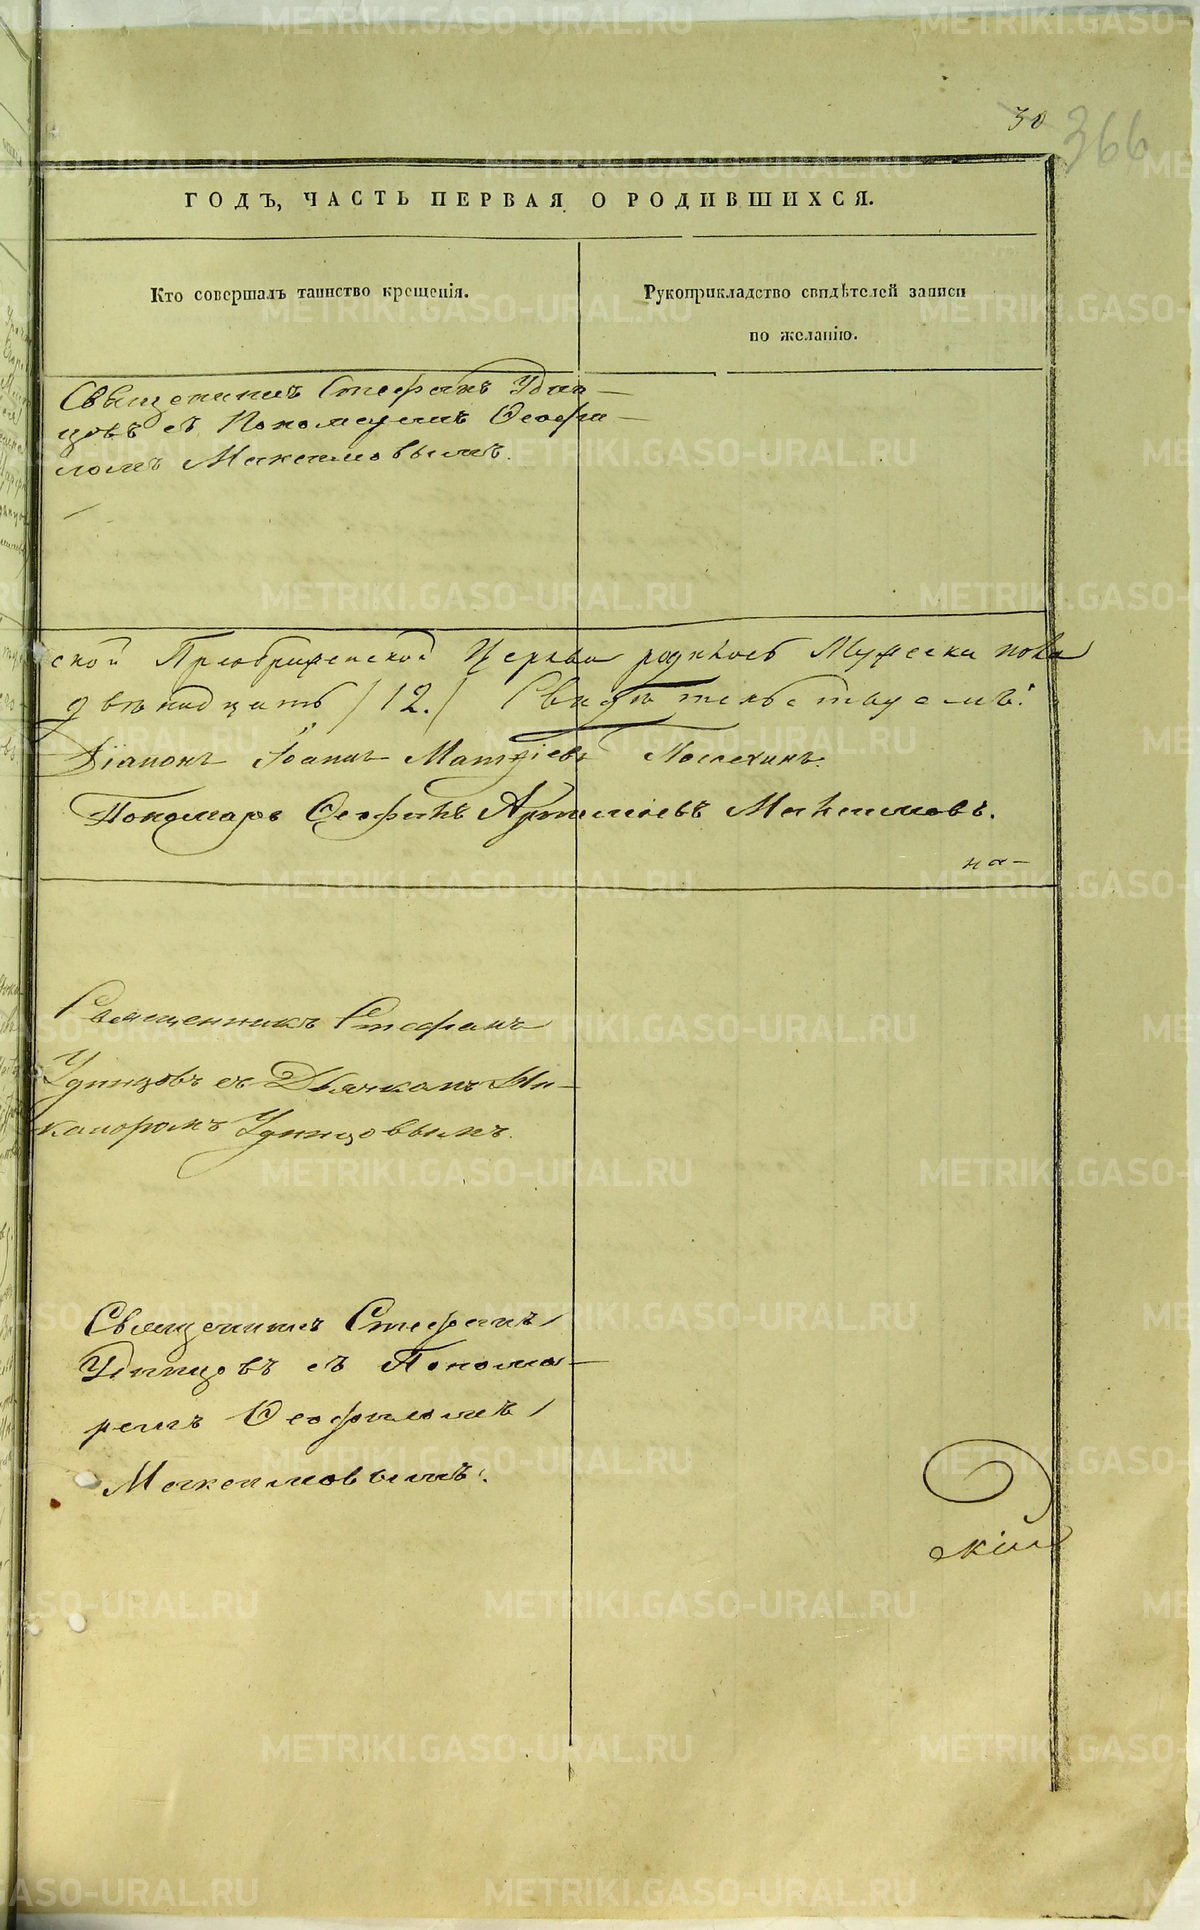 30
366
ГОДЪ, ЧАСТЬ ПЕРВАЯ О РОДИВШИХСЯ.
Кто совершалъ таинство крещенія.
Рукоприкладство свидѣтелей записи
по желанію.
Священникъ Стефанъ Удин-
цовъ съ Пономаремъ Ѳеофи-
ломъ Максимовымъ.
ской Преображенской Церкви родилось Мужеска пола
двѣнадцать /12./ Свидѣтельствуемъ:
Діаконъ Іоаннъ Матѳіевъ
Пономарь Ѳеофилъ Артемьевъ Максимовъ.
на-
Священникъ Стефанъ
Удинцовъ съ Дьячкомъ Ни-
каноромъ Удинцовымъ.
Священникъ Стефанъ
Удинцовъ съ Понома-
ремъ Ѳеофиломъ
Максимовымъ.
скій
METRIKI.GASO-URAL.RU